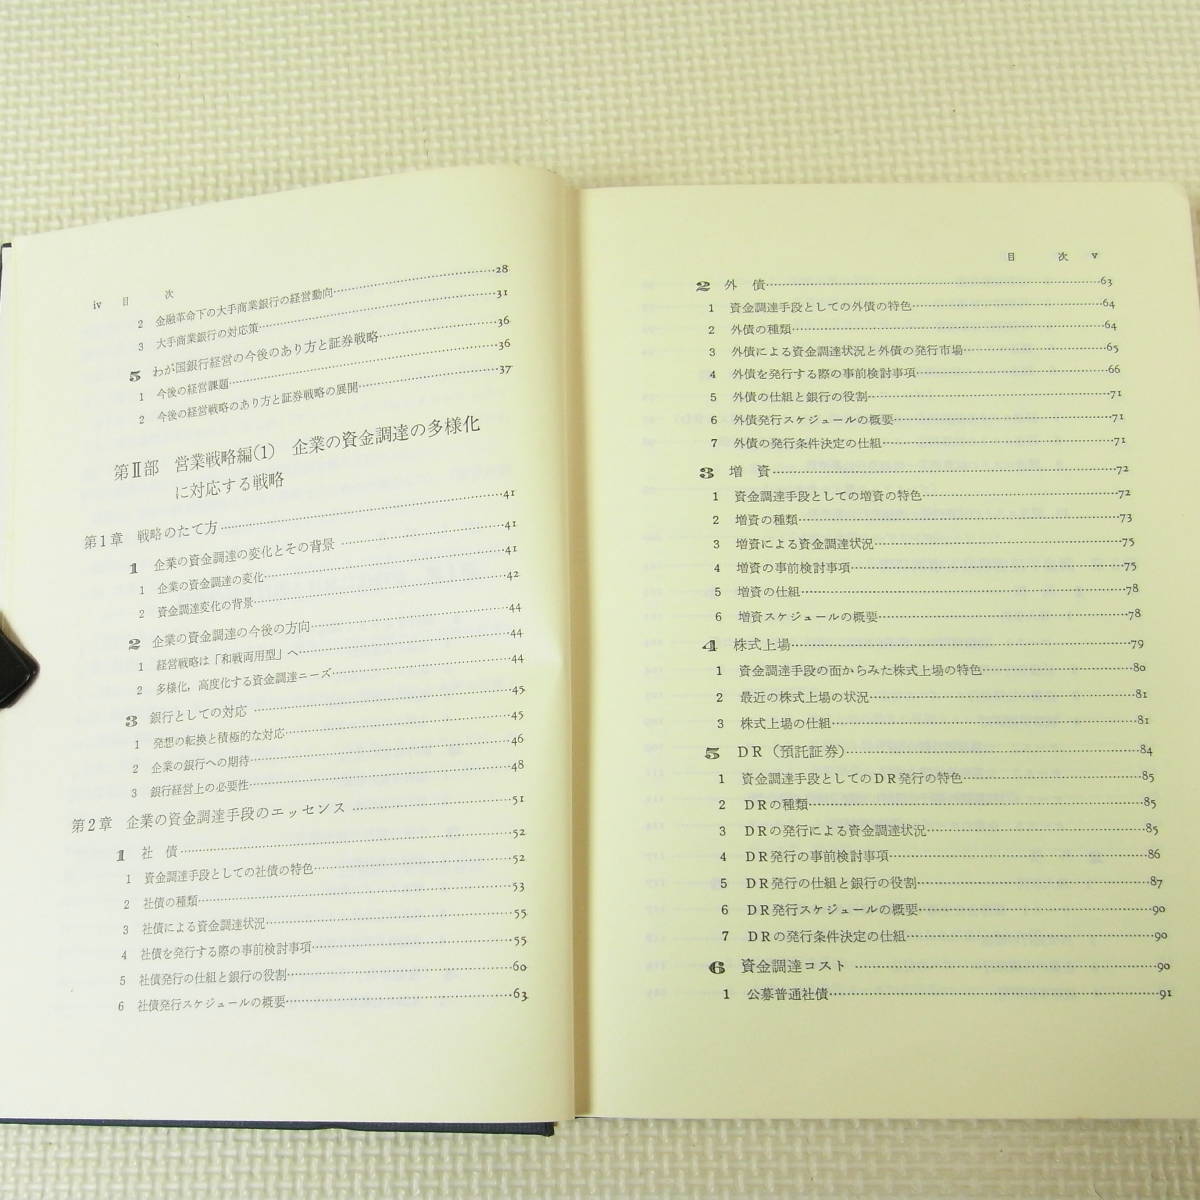 iv 目 次
2 金融革命下の大手商業銀行の経営動向…28
3 大手商業銀行の対応策…31
5 わが国銀行経営の今後のあり方と証券戦略…36
1 今後の経営課題…36
2 今後の経営戦略のあり方と証券戦略の展開…37
第Ⅱ部 営業戦略編(1) 企業の資金調達の多様化
に対応する戦略
第1章 戦略のたて方…41
1 企業の資金調達の変化とその背景…41
1 企業の資金調達の変化…41
2 資金調達変化の背景…42
2 企業の資金調達の今後の方向…44
1 経営戦略は「和戦両用型」へ…44
2 多様化,高度化する資金調達ニーズ…44
3 銀行としての対応…45
1 発想の転換と積極的な対応…45
2 企業の銀行への期待…46
3 銀行経営上の必要性…48
第2章 企業の資金調達手段のエッセンス…51
1 社 債…52
1 資金調達手段としての社債の特色…52
2 社債の種類…53
3 社債による資金調達状況…55
4 社債を発行する際の事前検討事項…55
5 社債発行の仕組と銀行の役割…60
6 社債発行スケジュールの概要…63
目 次 v
2 外 債…63
1 資金調達手段としての外債の特色…64
2 外債の種類…64
3 外債による資金調達状況と外債の発行市場…65
4 外債を発行する際の事前検討事項…66
5 外債の仕組と銀行の役割…71
6 外債発行スケジュールの概要…71
7 外債の発行条件決定の仕組…71
3 増 資…72
1 資金調達手段としての増資の特色…72
2 増資の種類…73
3 増資による資金調達状況…75
4 増資の事前検討事項…75
5 増資の仕組…78
6 増資スケジュールの概要…78
4 株式上場…79
1 資金調達手段の面からみた株式上場の特色…80
2 最近の株式上場の状況…81
3 株式上場の仕組…81
5 DR(預託証券)…84
1 資金調達手段としてのDR発行の特色…85
2 DRの種類…85
3 DRの発行による資金調達状況…85
4 DR発行の事前検討事項…86
5 DR発行の仕組と銀行の役割…87
6 DR発行スケジュールの概要…90
7 DRの発行条件決定の仕組…90
6 資金調達コスト…90
1 公募普通社債…91